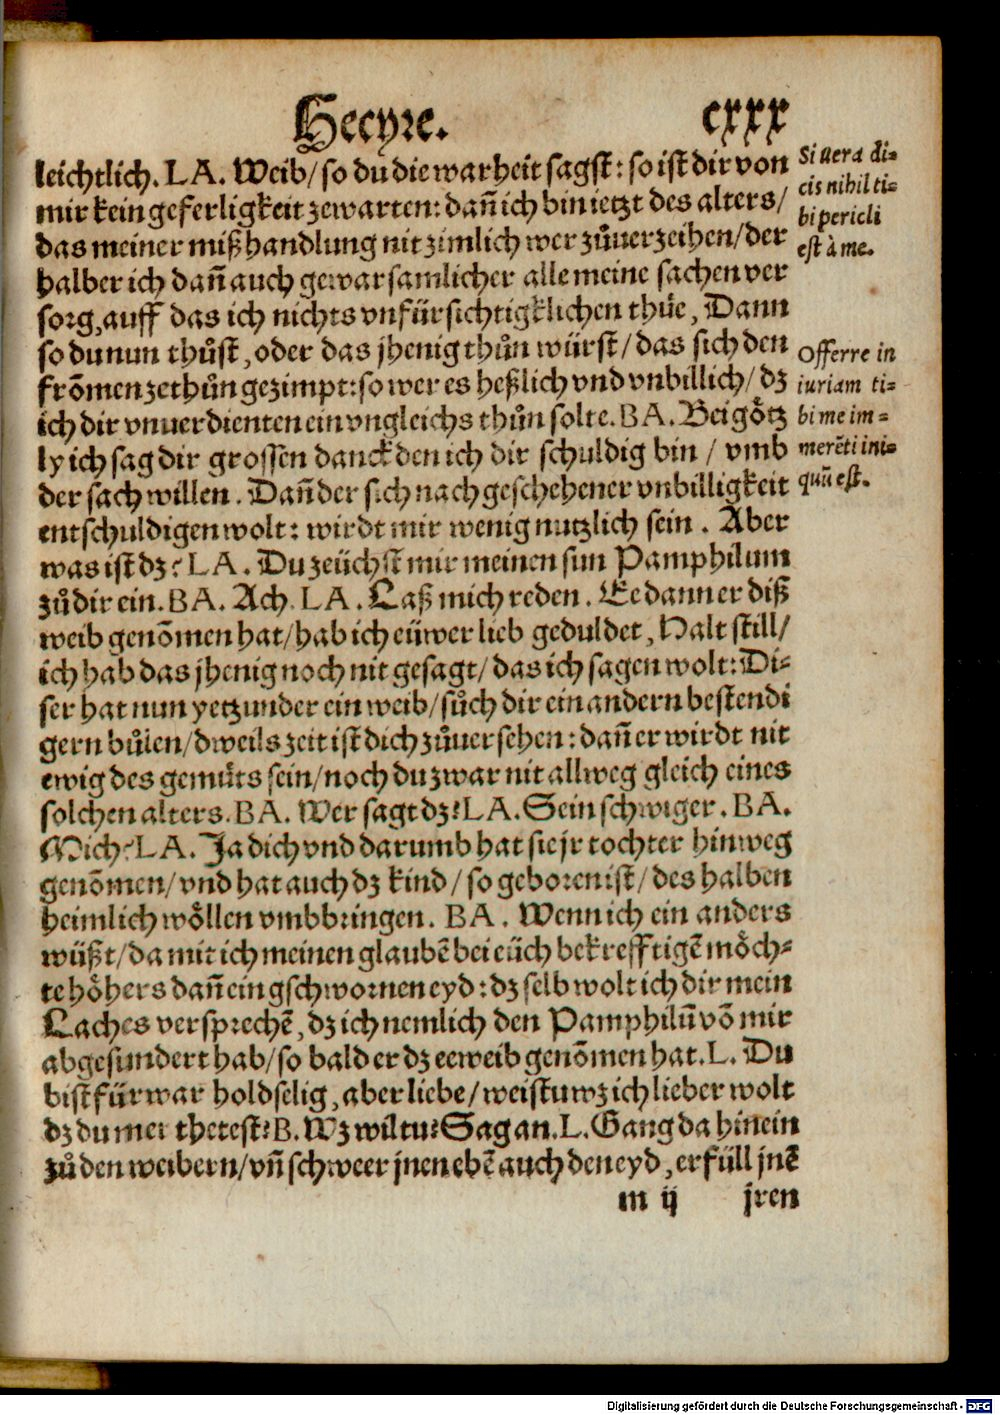 Hecyre. cxxx
leichtlich. LA. Weib/ so du die warheit sagst: so ist dir von
mir kein geferligkeit zewarten: dañ ich bin ietzt des alters/
das meiner mißhandlung nit zimlich wer zůuerzeihen/ der
halber ich dañ auch gewarsamlicher alle meine sachen ver
sorg, auff das ich nichts vnfürsichtigklichen thüe, Dann
so du nun thůst, oder das jhenig thůn würst/ das sich den
frõmen zethůn gezimpt: so wer es heßlich vnd vnbillich/ dz
ich dir vnuerdienten ein vngleichs thůn solte. BA. Bei götz
ly ich sag dir grossen danck den ich dir schuldig bin / vmb
der sach willen. Dañ der sich nach geschehener vnbilligkeit
entschuldigen wolt: wirdt mir wenig nutzlich sein. Aber
was ist dz? LA. Du zeüchst mir meinen sun Pamphilum
zů dir ein. BA. Ach. LA. Laß mich reden. Ee dann er diß
weib genõmen hat/ hab ich eüwer lieb geduldet, Halt still/
ich hab das jhenig noch nit gesagt/ das ich sagen wolt: Di-
ser hat nun yetzunder ein weib/ sůch dir ein andern bestendi
gern bůlen/ dweils zeit ist dich zůuersehen: dañ er wirdt nit
ewig des gemüts sein/ noch du zwar nit allweg gleich eines
solchen alters. BA. Wer sagt dz? LA. Sein schwiger. BA.
Mich? LA. Ja dich vnd darumb hat sie jr tochter hinweg
genõmen/ vnd hat auch dz kind/ so geboren ist/ des halben
heimlich wöllen vmbbringen. BA. Wenn ich ein anders
wüßt/ da mit ich meinen glaubẽ bei eüch bekrefftigẽ möch-
te höhers dañ ein gschwornen eyd: dz selb wolt ich dir mein
Laches versprechẽ, dz ich nemlich den Pamphilũ võ mir
abgesundert hab/ so bald er dz eeweib genõmen hat. L. Du
bist fürwar holdselig, aber liebe/ weistu wz ich lieber wolt
dz du mer thetest? B. Wz wiltu? Sag an. L. Gang da hinein
zů den weibern/ vñ schweer jnen ebẽ auch den eyd, erfüll jnẽ
m ij jren
Si uera di-
cis nihil ti-
bi pericli
est à me.
Offerre in
iuriam ti-
bi me im-
merẽti ini-
quũ est.
Digitalisierung gefördert durch die Deutsche Forschungsgemeinschaft - DFG